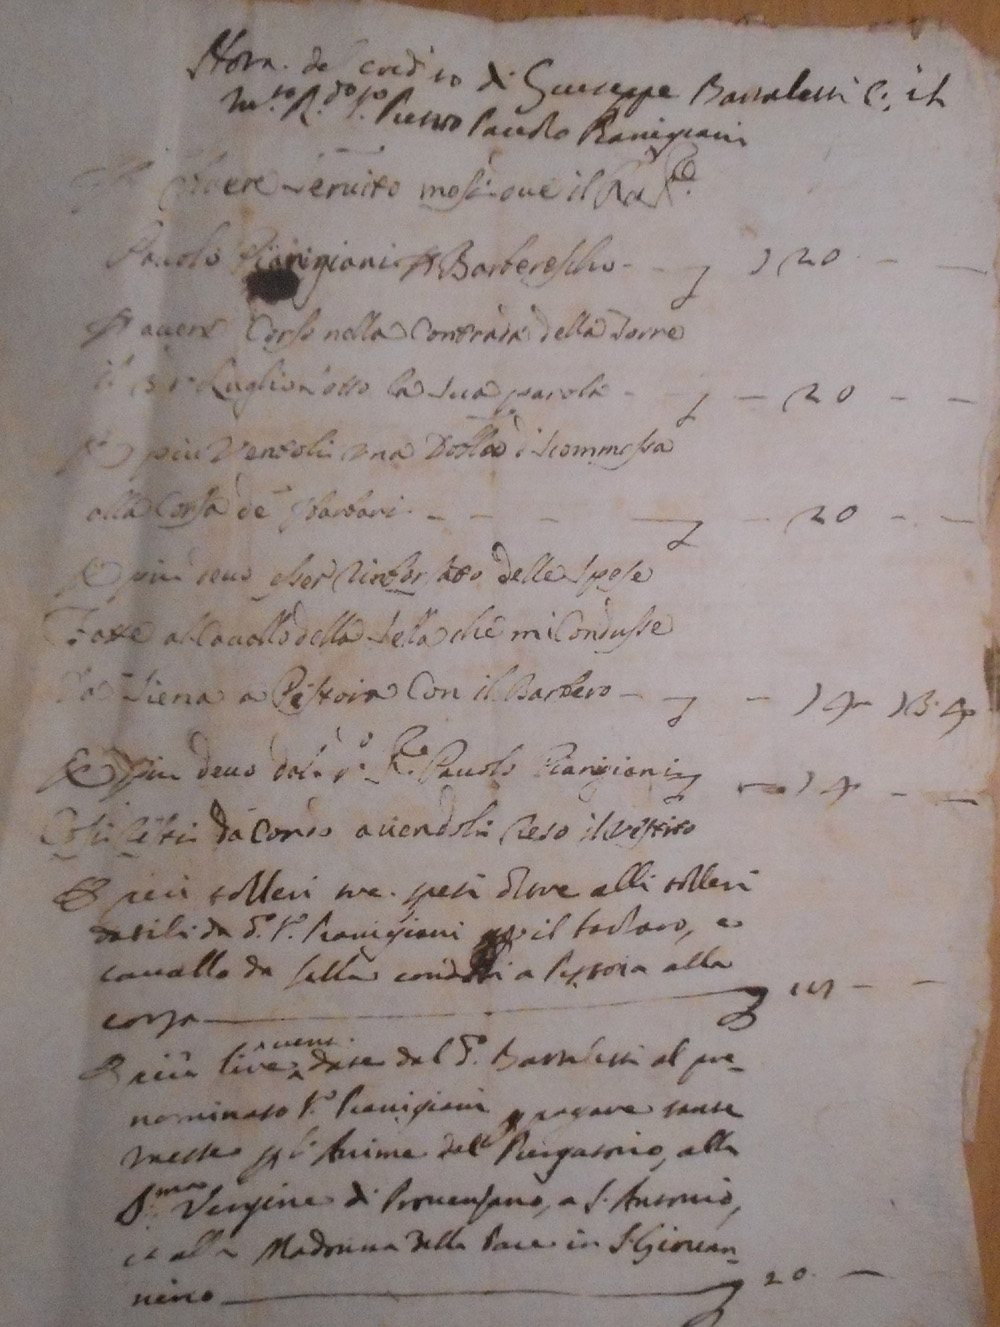 Nota de credito di Giuseppe Bastalessi c. il
M.to R.do S.r Pietro Pauolo Pianigiani
avere seruito mesi due il
Pauolo Pianigiani Barberescho 20
avere Corso nella Contrada della Torre
il Luglio sotto la sua parola 20
E più ventoli una Dobla di scommessa
alla Corsa de Barbari 20
E più deuo esser rinborsato delle spese
Fatte al Cauallo della Sella che mi Condusse
da Siena a Pistoia Con il Barbero 4 13.4
E più deuo dal Pauolo Pianigiani 4
da Corso auendoli reso il vestito
E più tolleri tre spesi oltre alli tolleri
datili da d.o S.r Pianigiani il barbaro, e
cauallo da sella condotti a Pistoia alla
corsa
E più lire venti date dal d.o Bastalessi al pre=
nominato S.r Pianigiani pagare tante
messe Anime del Purgatorio, alla
Vergine di Prouenzano, a S. Antonio,
et alla Madonna della Pace in S. Giouan=
nino 20